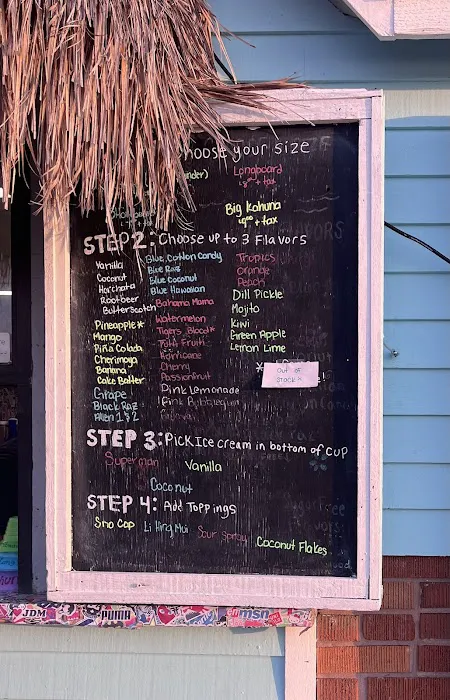 hoose your size
nder)
Longboard
+ tax
Big Kahuna
+ tax
STEP 2: Choose up to 3 Flavors
Vanilla
Coconut
Horchata
Rootbeer
Butterscotch
Pineapple*
Mango
Piña Colada
Cherimoya
Banana
Cake Batter
Grape
Black Raz
Alien 1 $ 2
Blue Cotton Candy
Blue Raz
Blue Coconut
Blue Hawaiian
Bahama Mama
Watermelon
Tigers Blood*
Tutti Frutti
Hurricane
Cherry
Passionfruit
Pink Lemonade
Pink Bubblegum
Tropics
Orange
Peach
Dill Pickle
Mojito
Kiwi
Green Apple
Lemon Lime
OUT OF
STOCK
STEP 3: Pick Ice cream in bottom of cup
Superman
Vanilla
Coconut
STEP 4: Add Toppings
Sno Cap
Li Hing Mui
Sour Spray
Coconut Flakes
JDM
PUMA
msn